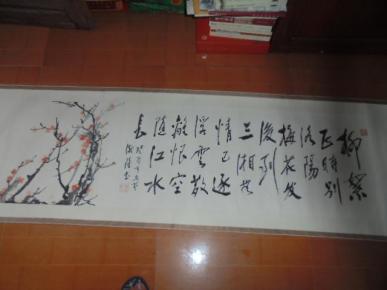 柳絮
飞时别
洛阳
梅花发
后到
三湘世
情已逐
浮云散
离恨空
随江水
长